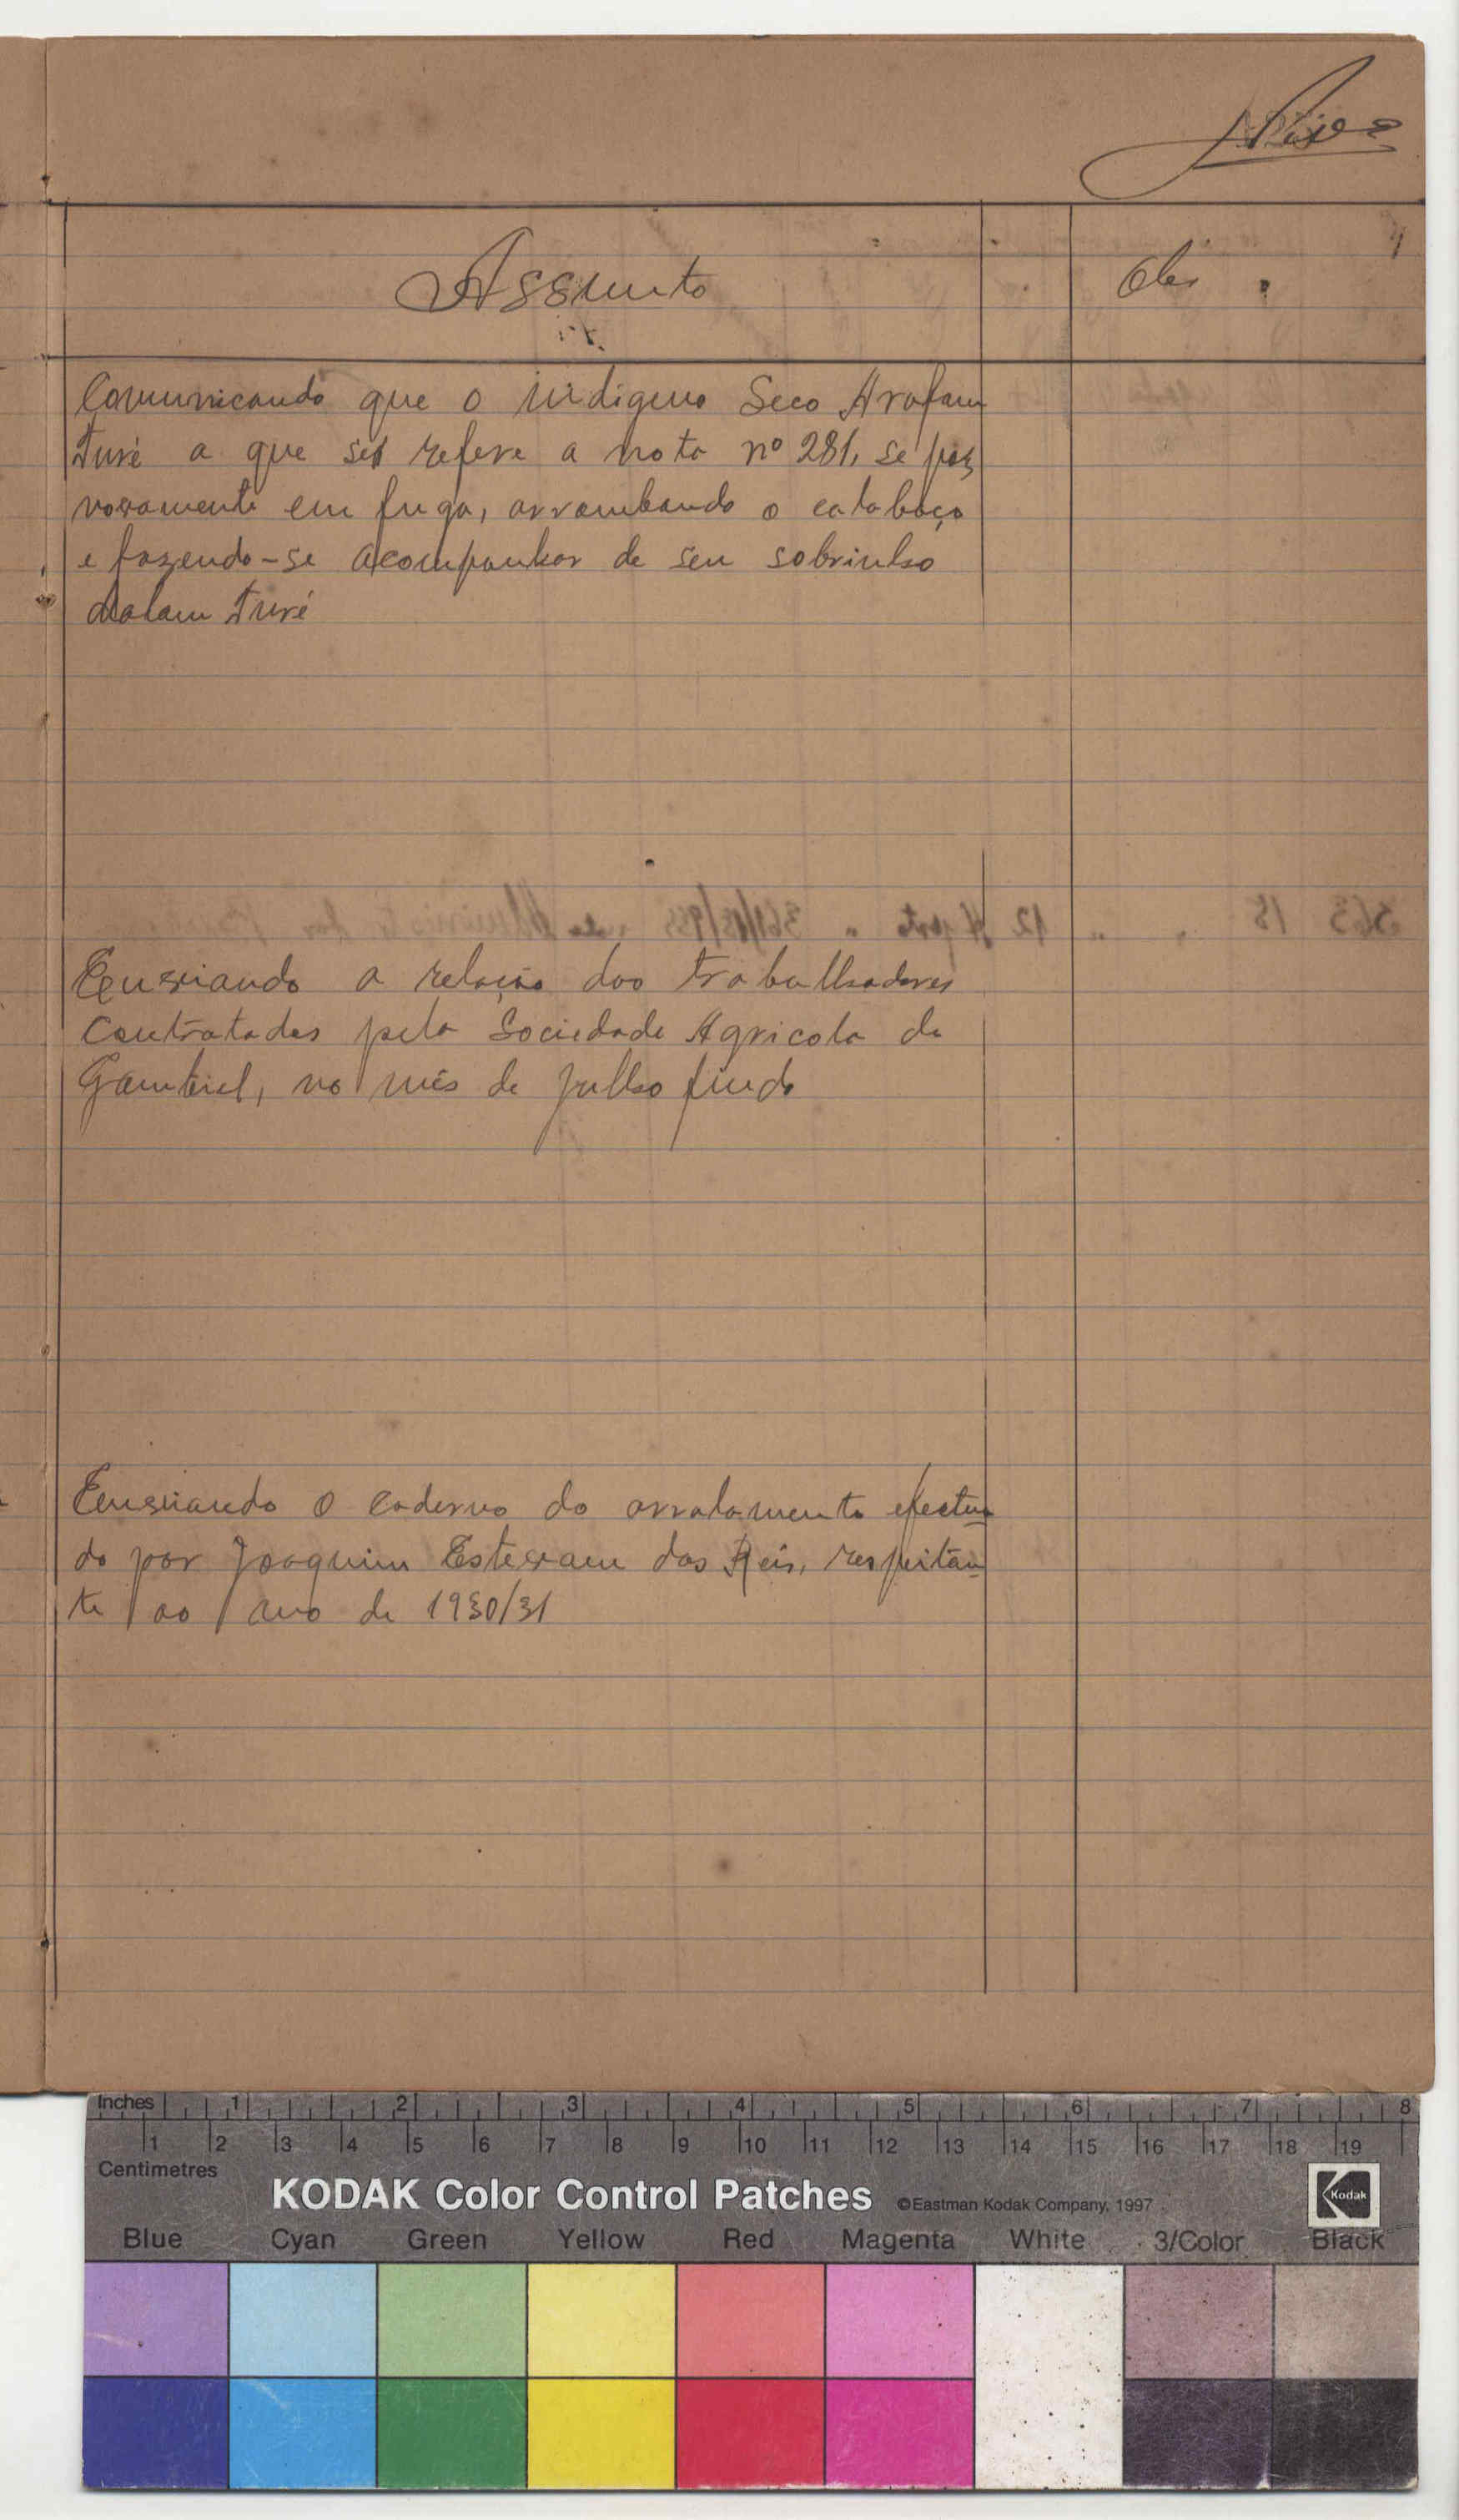 Assunto
Obs.
Comunicando que o indigena Seco Arafam
Turé a que se refere a nota nº 281, se pôz
novamente em fuga, arrombando o calaboço
e fazendo-se acompanhar de seu sobrinho
Malam Turé
Enviando a relação dos trabalhadores
contratados pela Sociedade Agricola de
Gambiel, no mês de Julho findo
Enviando o caderno do arrolamento efectua
do por Joaquim Estevam dos Reis, respeitan
te ao ano de 1930/31
Inches 1 2 3 4 5 6 7 8
1 2 3 4 5 6 7 8 9 10 11 12 13 14 15 16 17 18 19
Centimetres
KODAK Color Control Patches ©Eastman Kodak Company, 1997 Kodak
Blue Cyan Green Yellow Red Magenta White 3/Color Black